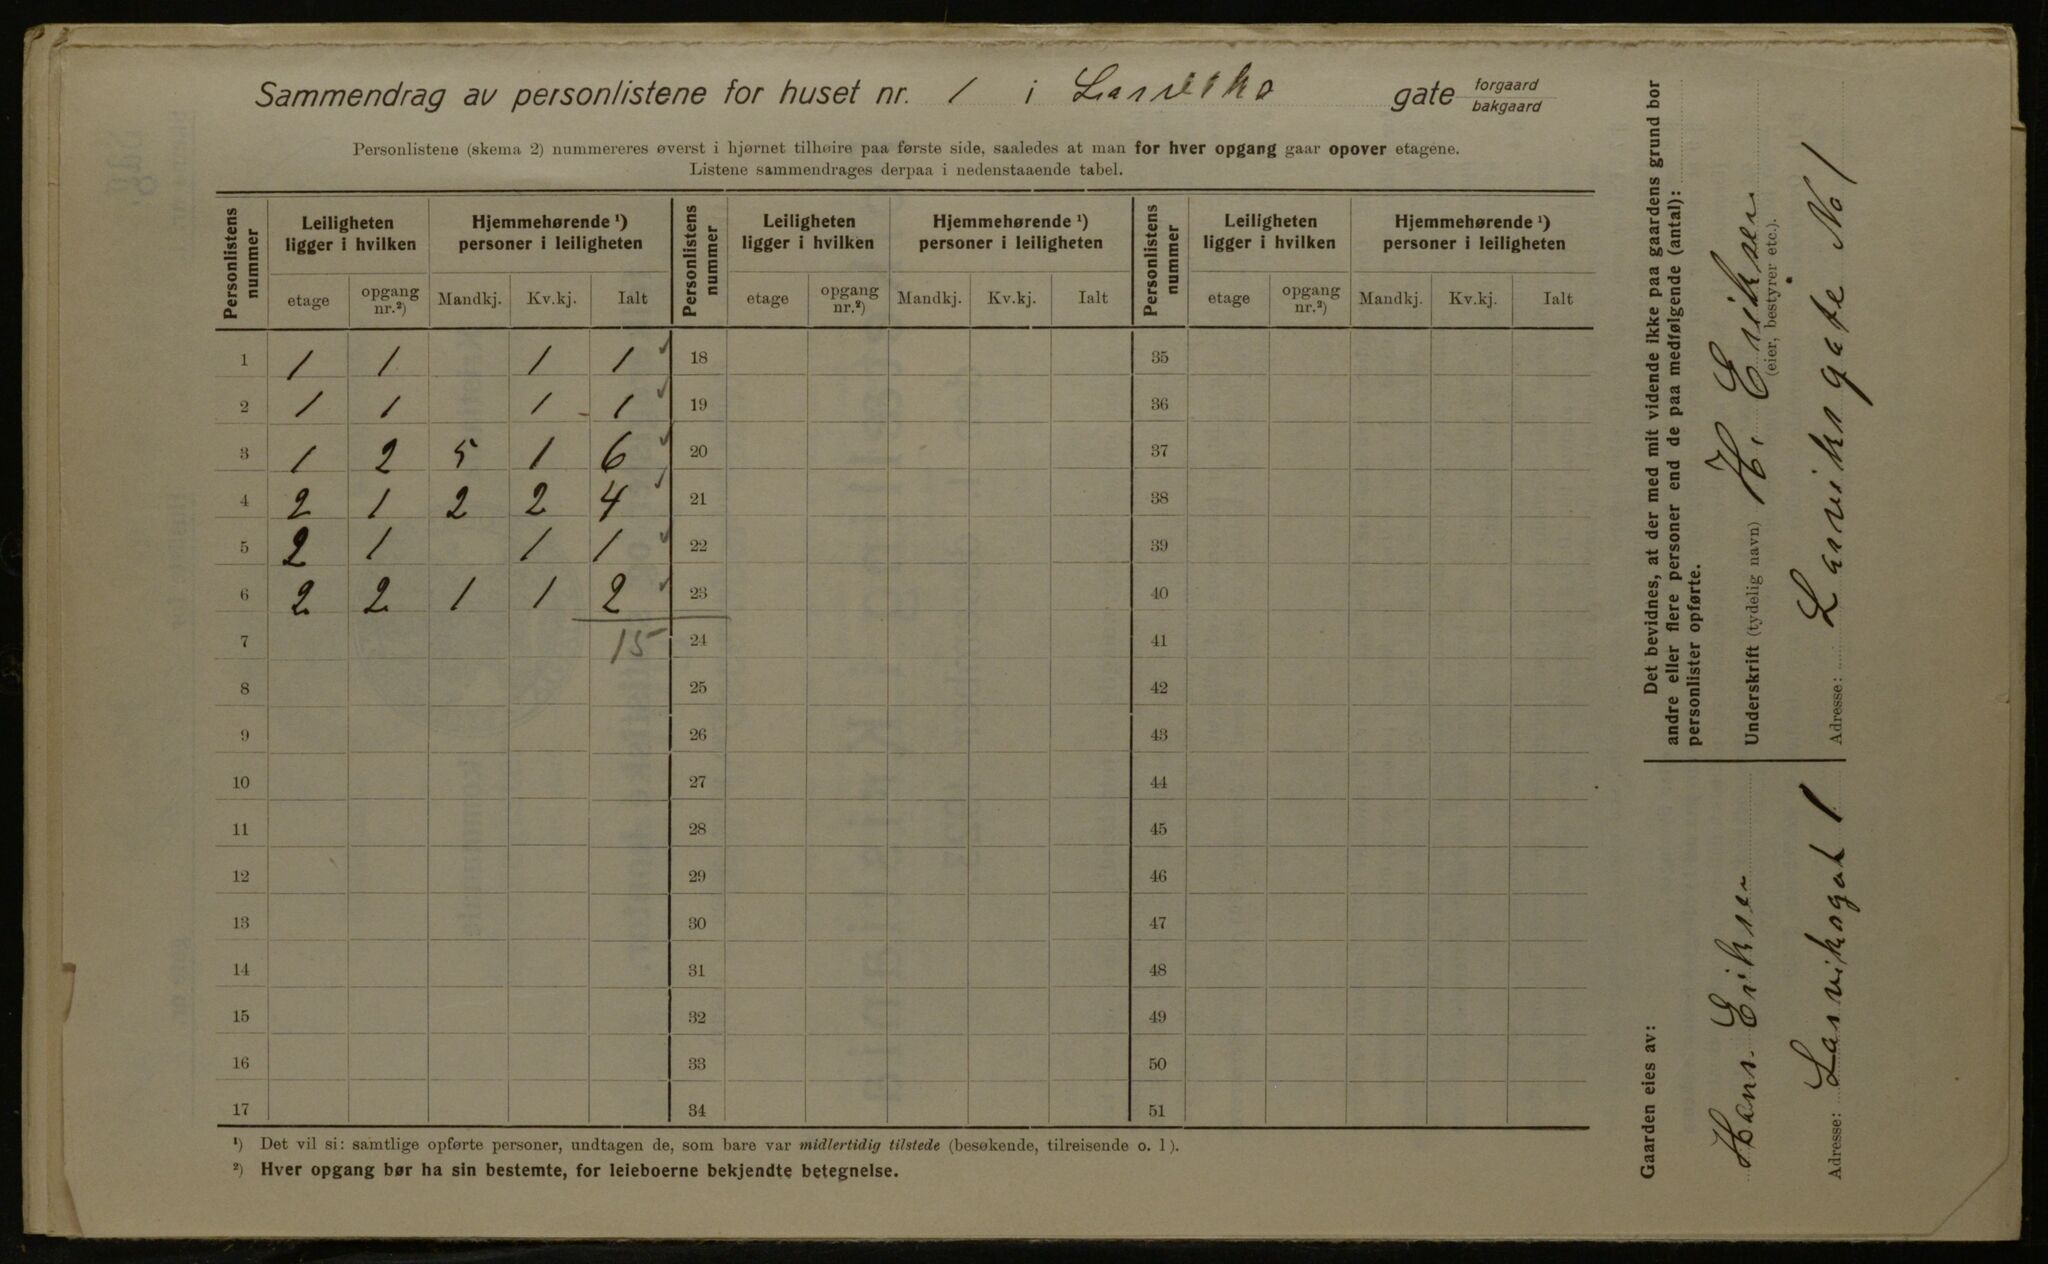 Sammendrag av personlistene for huset nr. 1 i Larviks gate forgaard
bakgaard
Personlistene (skema 2) nummereres øverst i hjørnet tilhøire paa første side, saaledes at man for hver opgang gaar opover etagene.
Listene sammendrages derpaa i nedenstaaende tabel.
Personlistens nummer | Leiligheten ligger i hvilken | Hjemmehørende ¹) personer i leiligheten | Personlistens nummer | Leiligheten ligger i hvilken | Hjemmehørende ¹) personer i leiligheten | Personlistens nummer | Leiligheten ligger i hvilken | Hjemmehørende ¹) personer i leiligheten
etage | opgang nr.²) | Mandkj. | Kv.kj. | Ialt | etage | opgang nr.²) | Mandkj. | Kv.kj. | Ialt | etage | opgang nr.²) | Mandkj. | Kv.kj. | Ialt
1 | 1 | 1 | | 1 | 1 ✓ | 18 | 35
2 | 1 | 1 | | 1 | 1 ✓ | 19 | 36
3 | 1 | 2 | 5 | 1 | 6 ✓ | 20 | 37
4 | 2 | 1 | 2 | 2 | 4 ✓ | 21 | 38
5 | 2 | 1 | | 1 | 1 ✓ | 22 | 39
6 | 2 | 2 | 1 | 1 | 2 ✓ | 23 | 40
7 | 15 | 24 | 41
8 | 25 | 42
9 | 26 | 43
10 | 27 | 44
11 | 28 | 45
12 | 29 | 46
13 | 30 | 47
14 | 31 | 48
15 | 32 | 49
16 | 33 | 50
17 | 34 | 51
¹) Det vil si: samtlige opførte personer, undtagen de, som bare var midlertidig tilstede (besøkende, tilreisende o. l).
²) Hver opgang bør ha sin bestemte, for leieboerne bekjendte betegnelse.
Det bevidnes, at der med mit vidende ikke paa gaardens grund bor
andre eller flere personer end de paa medfølgende (antal):
personlister opførte.
Underskrift (tydelig navn) H. Eriksen
(eier, bestyrer etc.).
Adresse: Larviksgate No 1
Gaarden eies av:
Hans Eriksen
Adresse: Larviksgat 1